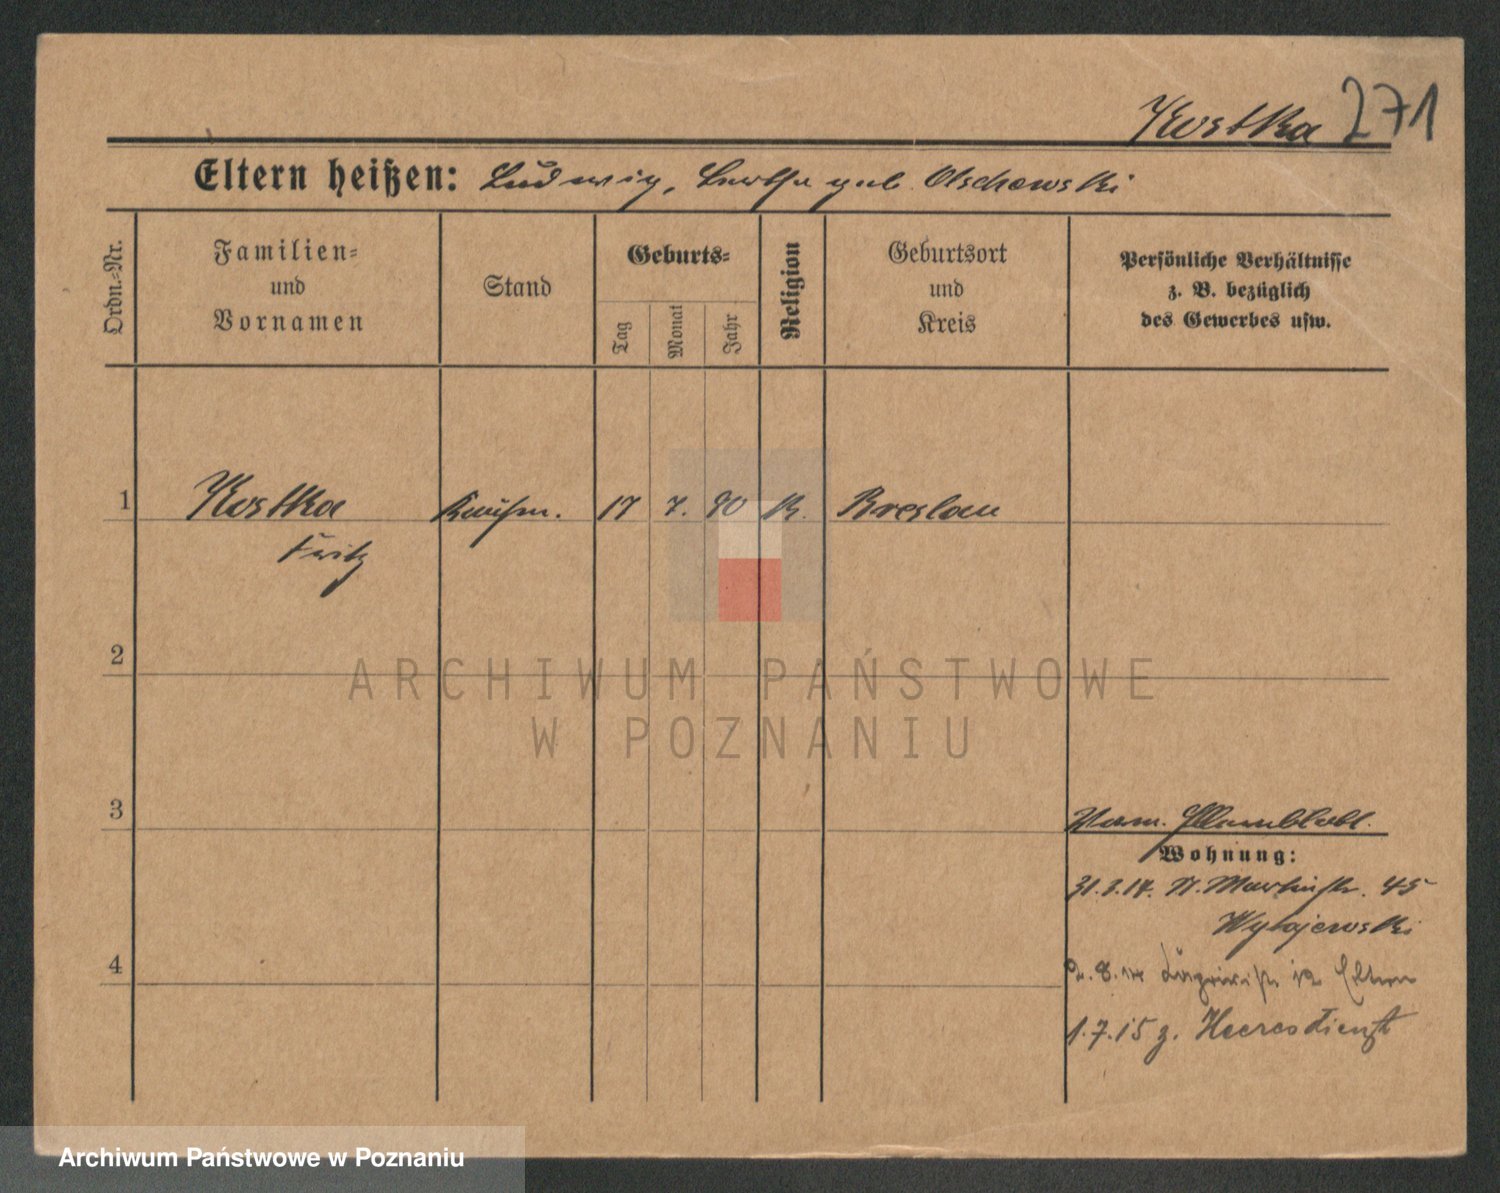 Kostka 271
Eltern heißen: Ludwig, Bertha geb. Olschewski
Ordn.=Nr.
Familien=
und
Vornamen
Stand
Geburts=
Tag
Monat
Jahr
Religion
Geburtsort
und
Kreis
Persönliche Verhältnisse
z. B. bezüglich
des Gewerbes usw.
1 Kostka Kaufm. 17 7. 90 k. Breslau
Fritz
2
3
4
Wohnung:
31.3.14. St. Martinstr. 45
2.8.14 12 Eltern
1.7.15 z. Heeresdienst
ARCHIWUM PAŃSTWOWE
W POZNANIU
Archiwum Państwowe w Poznaniu